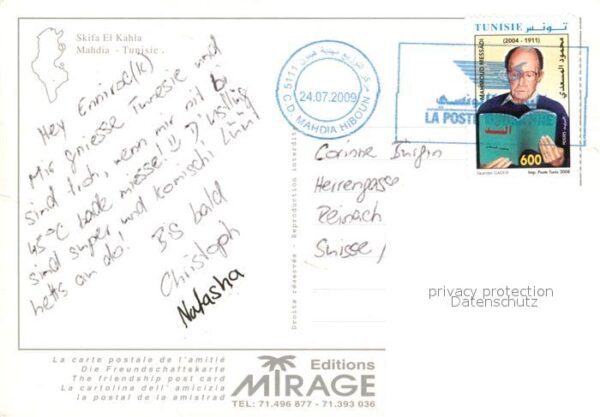 Skifa El Kahla
Mahdia - Tunisie
Hey
Mir gniesse Tunesie und
sind froh, wenn mir nit bi
45°C bade miesse! D'usflüg
sind super und komischi Lüüt
hetts an do!
BIS bald
Christoph
Natasha
5111
C.D. MAHDIA HIBOUN
24.07.2009
LA POSTE TUNISIENNE
TUNISIE تونس
(2004 - 1911)
MAHMOUD MESSADI
محمود المسعدي
السد
600
Imp. Poste Tunis 2008
Corinne Bürgin
Herrengasse
Reinach
Suisse /
Droits réservés Reproduction interdite
privacy protection
Datenschutz
La carte postale de l'amitié
Die Freundschaftskarte
The friendship post card
La cartolina dell' amicizia
la postal de la amistrad
Editions
MIRAGE
TEL: 71.496 877 - 71.393 036